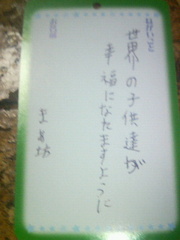 願いごと
世界の子供達が
幸福になれますように